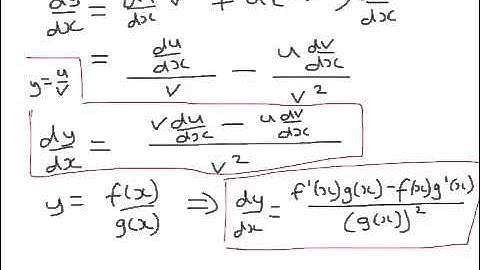 dy/dx = du/dx v⁻¹ + u(-v⁻²) dv/dx
= (du/dx)/v - (u dv/dx)/v²
y=u/v
dy/dx = (v du/dx - u dv/dx)/v²
y = f(x)/g(x) ⇒ dy/dx = (f'(x)g(x)-f(x)g'(x))/(g(x))²